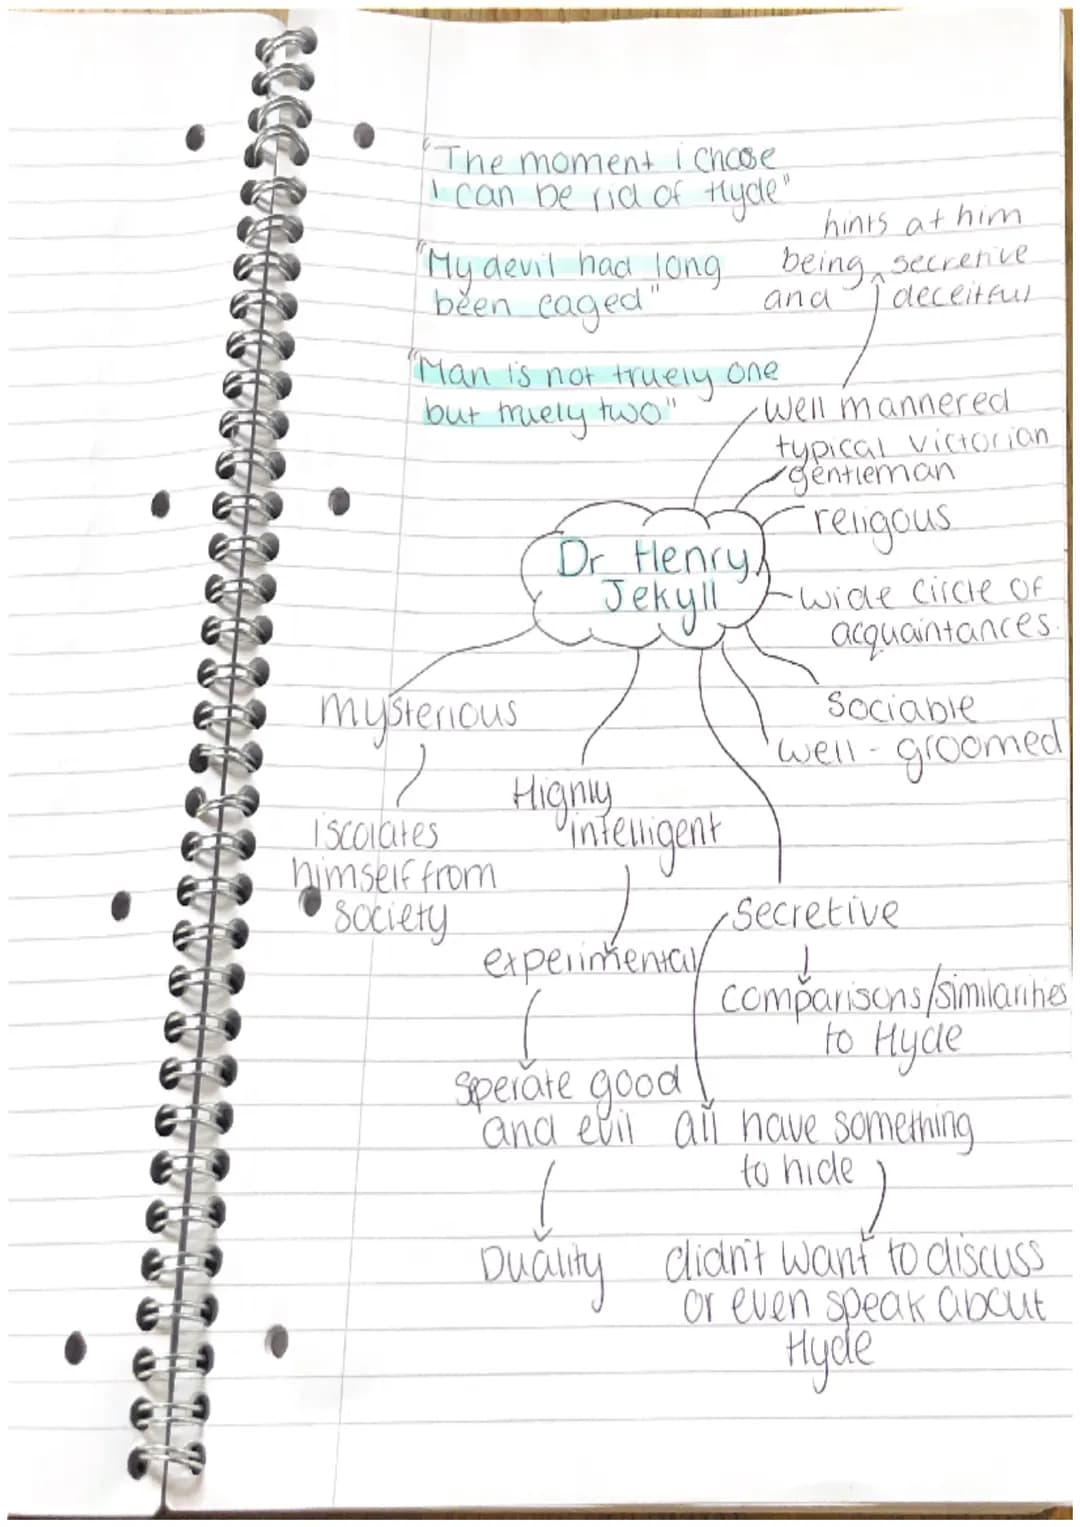 "The moment i choose
I can be rid of Hyde"
"My devil had long
been caged"
"Man is not truely one
but truely two"
hints at him
being secretive
and deceitful
well mannered
typical victorian
gentleman
religous
wide circle of
acquaintances.
Sociable
well-groomed
Dr Henry
Jekyll
mysterious
iscolates
himself from
society
Highly
intelligent
experimental
Sperate good
and evil
Duality
Secretive
comparisons/similarities
to Hyde
all have something
to hide
didn't want to discuss
or even speak about
Hyde